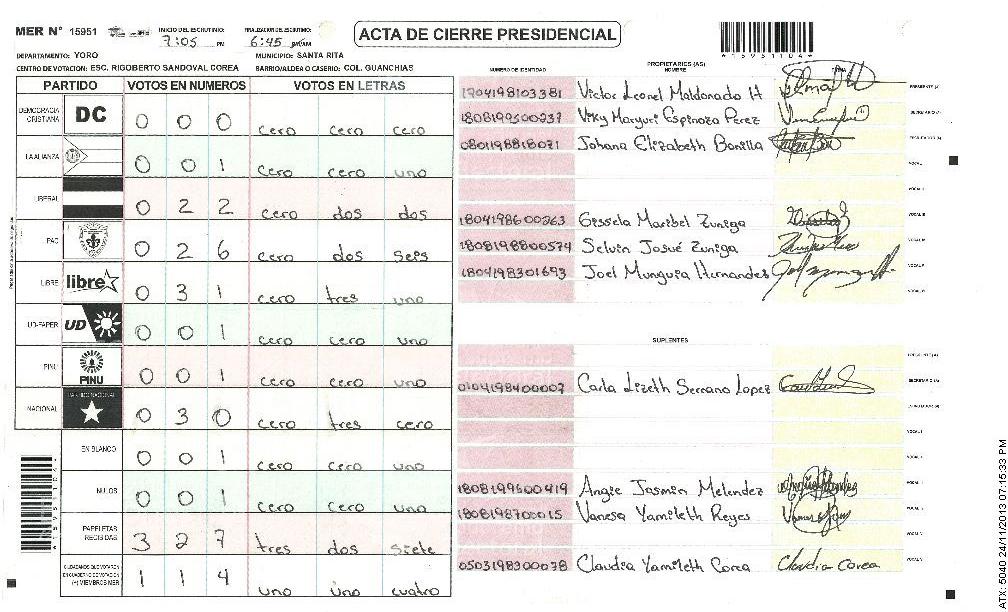 MER N° 15951 INICIO DEL ESCRUTINIO: 7:05 PM FINALIZACION DEL ESCRUTINIO: 6:45 PM/AM
ACTA DE CIERRE PRESIDENCIAL
*15951104*
DEPARTAMENTO: YORO MUNICIPIO: SANTA RITA
CENTRO DE VOTACION: ESC. RIGOBERTO SANDOVAL COREA BARRIO/ALDEA O CASERIO: COL. GUANCHIAS
PARTIDO VOTOS EN NUMEROS VOTOS EN LETRAS
DEMOCRACIA CRISTIANA DC 0 0 0 cero cero cero
LA ALIANZA 0 0 1 cero cero uno
LIBERAL 0 2 2 cero dos dos
PAC 0 2 6 cero dos seis
LIBRE libre 0 3 1 cero tres uno
UD-FAPER UD 0 0 1 cero cero uno
PINU PINU 0 0 1 cero cero uno
NACIONAL PARTIDO NACIONAL 0 3 0 cero tres cero
EN BLANCO 0 0 1 cero cero uno
NULOS 0 0 1 cero cero uno
PAPELETAS RECIBIDAS 3 2 7 tres dos siete
CIUDADANOS QUE VOTARON EN CUADERNO DE VOTACION (+) MIEMBROS MER 1 1 4 uno uno cuatro
PROPIETARIOS (AS)
NUMERO DE IDENTIDAD NOMBRE FIRMA
1704198103381 Victor Leonel Maldonado H PRESIDENTE (A)
1808199500237 Viky Maryuri Espinoza Perez SECRETARIO (A)
0801198818071 Johana Elizabeth Bonilla ESCRUTADOR (A)
VOCAL I
VOCAL II
1804198600263 Gissela Maribel Zuniga VOCAL III
1808198800574 Selvin Josué Zuniga VOCAL IV
1804198301693 Joel Munguia Hernandes VOCAL V
VOCAL VI
SUPLENTES
PRESIDENTE (A)
0104198400007 Carla Lizeth Serrano Lopez SECRETARIO (A)
ESCRUTADOR (A)
VOCAL I
1808199500419 Angie Jasmin Melendez
1808198700015 Vanesa Yamileth Reyes
0503198300078 Claudia Yamileth Corea Claudia Corea
ATX: 5040 24/11/2013 07:15:33 PM